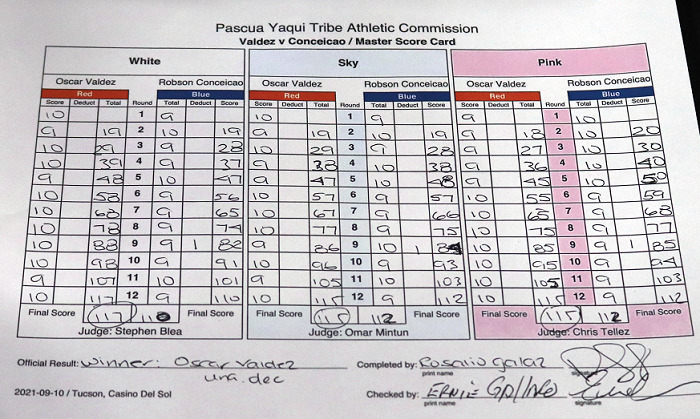 Pascua Yaqui Tribe Athletic Commission
Valdez v Conceicao / Master Score Card
White Sky Pink
Oscar Valdez Robson Conceicao Oscar Valdez Robson Conceicao Oscar Valdez Robson Conceicao
Red Blue Red Blue Red Blue
Score Deduct Total Round Total Deduct Score Score Deduct Total Round Total Deduct Score Score Deduct Total Round Total Deduct Score
10 1 9 10 1 9 9 1 10
9 19 2 10 19 9 19 2 10 19 9 18 2 10 20
10 29 3 9 28 10 29 3 9 28 9 27 3 10 30
10 39 4 9 37 9 38 4 10 38 9 36 4 10 40
9 48 5 10 47 9 47 5 10 48 9 45 5 10 50
10 58 6 9 56 10 57 6 9 57 10 55 6 9 59
10 68 7 9 65 10 67 7 9 66 10 65 7 9 68
10 78 8 9 74 10 77 8 9 75 10 75 8 9 77
10 88 9 9 1 82 9 86 9 10 1 84 10 85 9 9 1 85
10 98 10 9 91 10 96 10 9 93 10 95 10 9 94
9 107 11 10 101 9 105 11 10 103 10 105 11 9 103
10 117 12 9 110 10 115 12 9 112 10 115 12 9 112
Final Score 117 110 Final Score Final Score 115 112 Final Score Final Score 115 112 Final Score
Judge: Stephen Blea Judge: Omar Mintun Judge: Chris Tellez
Official Result: Winner: Oscar Valdez Completed by: Rosalio Galaz
una. dec print name signature
2021-09-10 / Tucson, Casino Del Sol Checked by: ERNIE GALLARO
print name signature